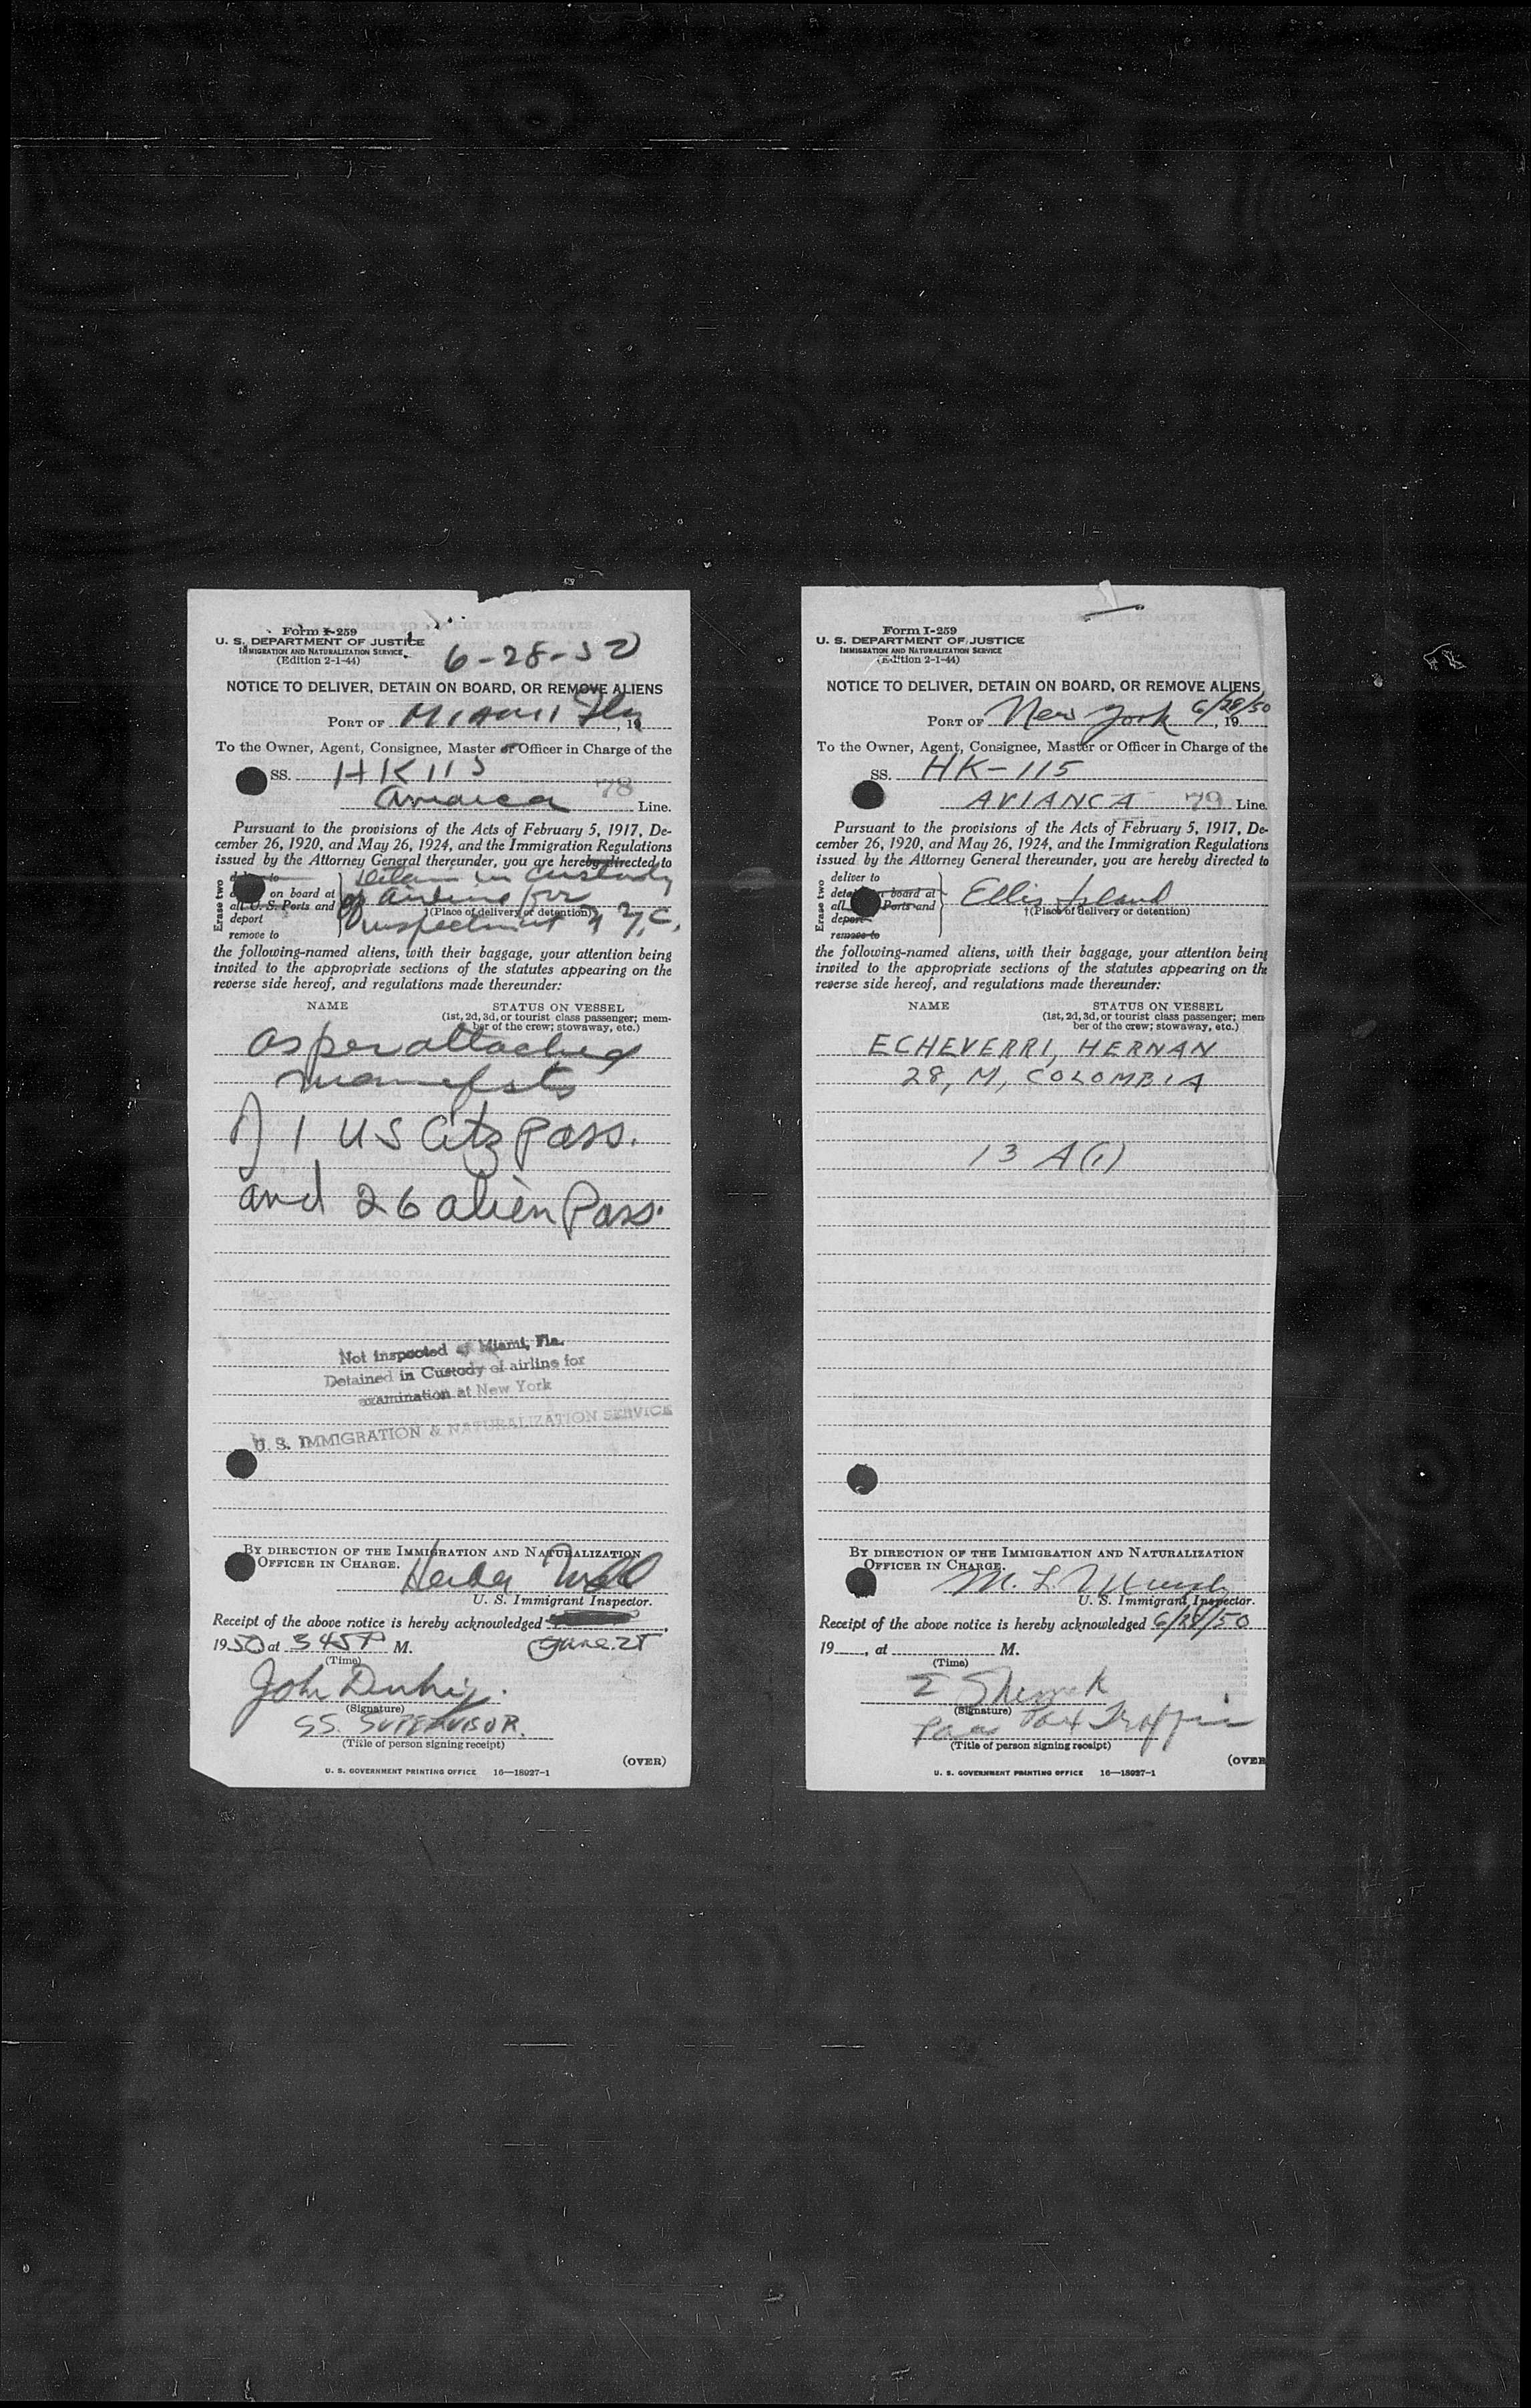 Form I-259
U. S. DEPARTMENT OF JUSTICE
IMMIGRATION AND NATURALIZATION SERVICE
(Edition 2-1-44)
6-28-50
NOTICE TO DELIVER, DETAIN ON BOARD, OR REMOVE ALIENS
PORT OF Miami Fla, 19
To the Owner, Agent, Consignee, Master or Officer in Charge of the
SS. HK 115
78
Avianca Line.
Pursuant to the provisions of the Acts of February 5, 1917, De-
cember 26, 1920, and May 26, 1924, and the Immigration Regulations
issued by the Attorney General thereunder, you are hereby directed to
Erase two
to
on board at
all U. S. Ports and
deport
remove to
Detain in custody
of airline for
†(Place of delivery or detention)
Inspection
the following-named aliens, with their baggage, your attention being
invited to the appropriate sections of the statutes appearing on the
reverse side hereof, and regulations made thereunder:
NAME STATUS ON VESSEL
(1st, 2d, 3d, or tourist class passenger; mem-
ber of the crew; stowaway, etc.)
as per attached
manifests
of 1 US Citz Pass.
and 26 alien Pass.
Not inspected at Miami, Fla.
Detained in Custody of airline for
examination at New York
U. S. IMMIGRATION & NATURALIZATION SERVICE
BY DIRECTION OF THE IMMIGRATION AND NATURALIZATION
OFFICER IN CHARGE.
U. S. Immigrant Inspector.
Receipt of the above notice is hereby acknowledged
1950 at 345 P M. June 28
(Time)
John
(Signature)
SS. SUPERVISOR.
(Title of person signing receipt)
(OVER)
U. S. GOVERNMENT PRINTING OFFICE 16—18927-1
Form I-259
U. S. DEPARTMENT OF JUSTICE
IMMIGRATION AND NATURALIZATION SERVICE
(Edition 2-1-44)
NOTICE TO DELIVER, DETAIN ON BOARD, OR REMOVE ALIENS
PORT OF New York 6/28/50, 19
To the Owner, Agent, Consignee, Master or Officer in Charge of the
SS. HK-115
AVIANCA 79 Line.
Pursuant to the provisions of the Acts of February 5, 1917, De-
cember 26, 1920, and May 26, 1924, and the Immigration Regulations
issued by the Attorney General thereunder, you are hereby directed to
Erase two
deliver to
detain on board at
all Ports and
deport
remove to
Ellis Island
†(Place of delivery or detention)
the following-named aliens, with their baggage, your attention being
invited to the appropriate sections of the statutes appearing on the
reverse side hereof, and regulations made thereunder:
NAME STATUS ON VESSEL
(1st, 2d, 3d, or tourist class passenger; mem-
ber of the crew; stowaway, etc.)
ECHEVERRI, HERNAN
28, M, COLOMBIA
13 A(1)
BY DIRECTION OF THE IMMIGRATION AND NATURALIZATION
OFFICER IN CHARGE.
M. L.
U. S. Immigrant Inspector.
Receipt of the above notice is hereby acknowledged 6/28/50
19____, at ____ M.
(Time)
(Signature)
(Title of person signing receipt)
(OVER
U. S. GOVERNMENT PRINTING OFFICE 16—18927-1